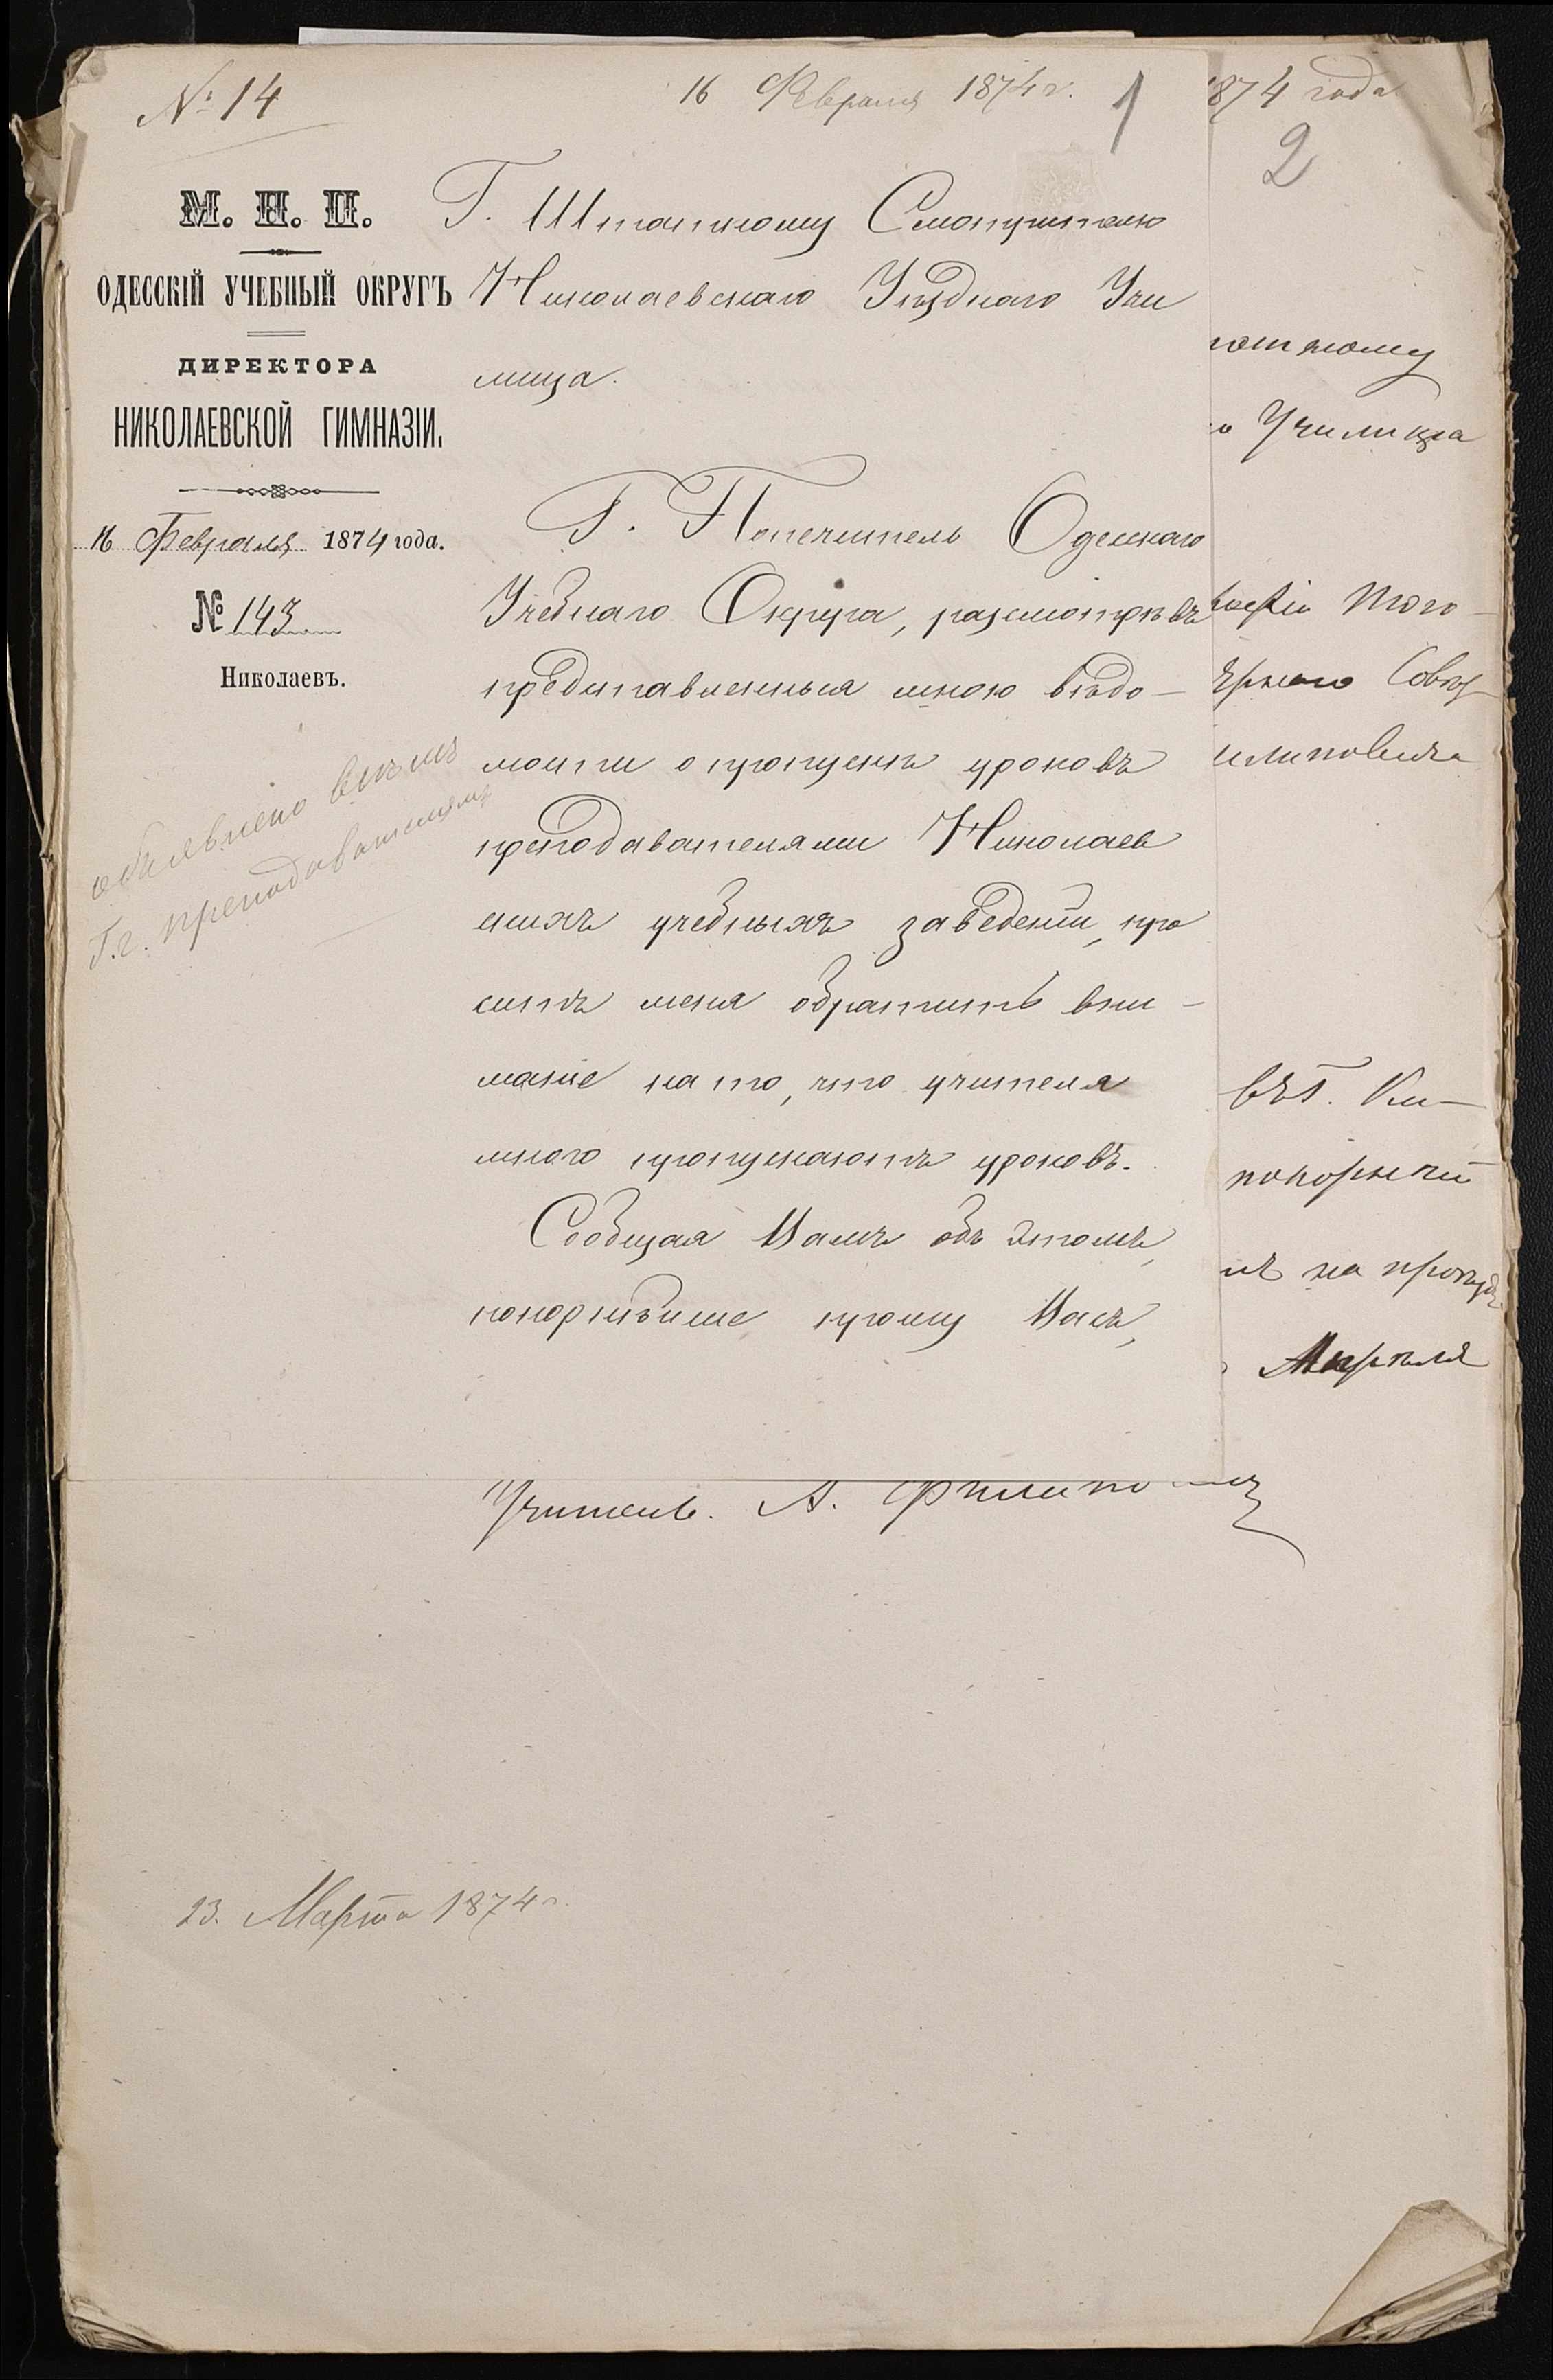 № 14
16 Февраля 1874 г.
1
М. Н. П.
ОДЕССКІЙ УЧЕБНЫЙ ОКРУГЪ
ДИРЕКТОРА
НИКОЛАЕВСКОЙ ГИМНАЗІИ.
16 Февраля 1874 года.
№ 143
Николаевъ.
объявлено
Г.г. преподавателямъ
Г. Штатному Смотрителю
Николаевскаго Уѣзднаго Учи
лища.
Г. Попечитель Одесскаго
Учебнаго Округа, разсмотрѣвъ
представленныя мною вѣдо-
мости о пропускѣ уроковъ
преподавателями Николаев
скихъ учебныхъ заведеній, про
ситъ меня обратить вни-
маніе на то, что учителя
много пропускаютъ уроковъ.
Сообщая Вамъ объ этомъ,
покорнѣйше прошу Васъ,
1874 года
2
тному
о Училища
того-
Совѣт
иповича
въ г. Ки-
покорнѣй
на проѣздъ
Апрѣля
Учитель. А. Филипович
23. Марта 1874 г.